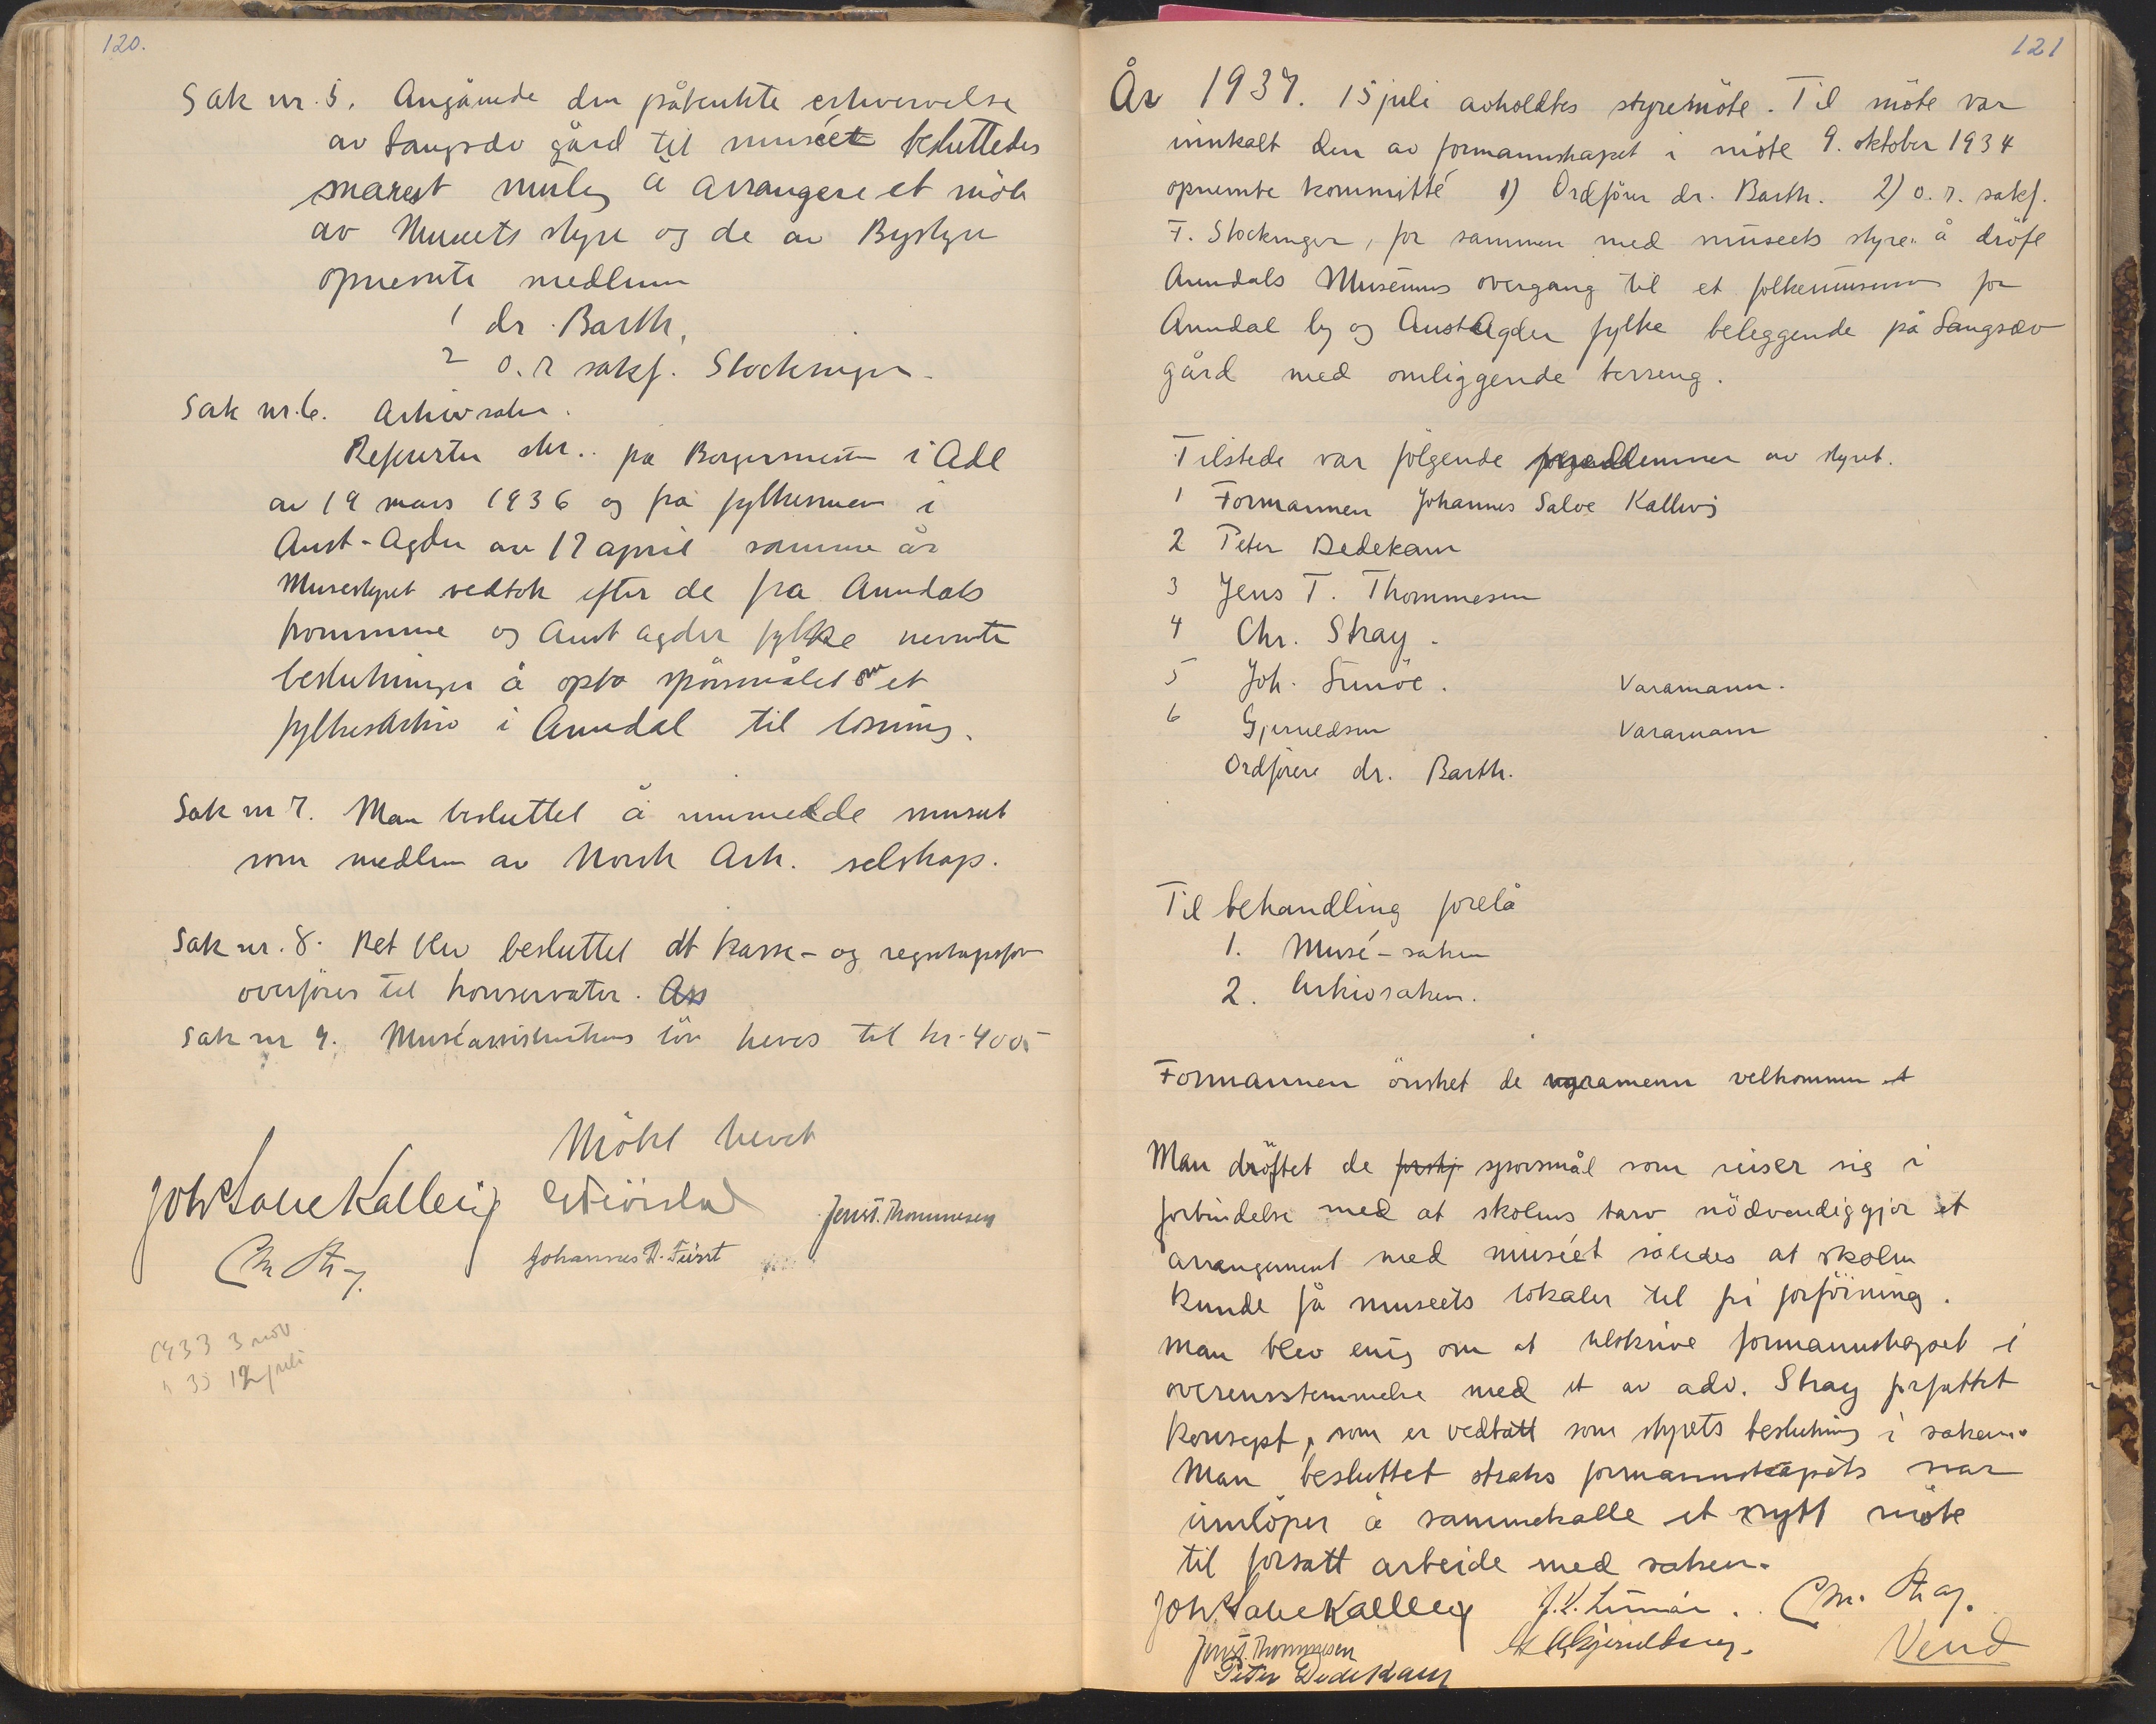 120.
Sak nr. 5. Angående den påtenkte erhvervelse
av Langsæv gård til muséet besluttedes
snarest mulig å arrangere et möte
av Museets styre og de av Bystyre
opnevnte medlem
1 dr. Barth,
2 o.r sakf. Stockinger.
Sak nr. 6. Arkivsaken.
Refererter skr. fra Borgermester i Adl
av 19 mars 1936 og fra fylkesmen i
Aust-Agder av 17 april samme år
Musestyret vedtok efter de fra Arendals
kommune og Aust Agder fylke nevnte
beslutninger å opta spörsmålet om et
fylkesarkiv i Arendal til lösning.
Sak nr 7. Man besluttet å innmelde museet
som medlem av Norsk Ark. selskap.
Sak nr. 8. Det blev besluttet at kasse- og regnskapsför
overföres til konservator. Ass
Sak nr 9. Muséassistentens lön heves til kr. 400-
Mötet hevet
Joh Salve Kallevig
Jens T. Thommesen
Chr Stray.
Johannes D. Fürst
1933 3 nov
" 35 12 juli
121
År 1937. 15 juli avholdtes styremöte. Til möte var
innkalt den av formannskapet i möte 9. oktober 1934
opnevnte kommitté 1) Ordförer dr. Barth. 2) o.r. sakf.
F. Stockinger, for sammen med museets styre å dröfte
Arendals Museums overgang til et folkemuseum for
Arendal by og Aust Agder fylke beleggende på Langsæv
gård med omliggende terreng.
Tilstede var fölgende medlemmer av styret.
1 Formannen Johannes Salve Kallevig
2 Peter Dedekam
3 Jens T. Thommesen
4 Chr. Stray.
5 Joh. Lunöe. Varamann.
6 Gjeruldsen Varamann
Ordförere dr. Barth.
Til behandling forelå
1. Musé-saken
2. Arkivsaken.
Formannen önsket de varamenn velkommen
Man dröftet de spörsmål som reiser sig i
forbindelse med at skolens tarv nödvendiggjör et
arrangement med muséet således at skolen
kunde få museets lokaler til fri forföining.
Man blev enig om at tilskrive formannskapet i
overensstemmelse med et av adv. Stray forfattet
konsept, som er vedtatt som styrets beslutning i saken.
Man besluttet straks formannskapets svar
innlöper å sammenkalle et nytt möte
til forsatt arbeide med saken.
Joh Salve Kallevig J. K. Lunöe. Chr. Stray.
Jens T. Thommesen Vend
Peter Dedekam